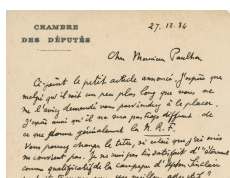 CHAMBRE
DES DÉPUTÉS
27.12.34
Cher Monsieur Paulhan
Ci-joint le petit article annoncé. J'espère que
malgré qu'il soit un peu plus long que vous ne
me l'aviez demandé vous parviendrez à le placer.
J'espère aussi qu'il ne sera pas trop différent de
ce que donne généralement la N.R.F.
Vous pouvez changer le titre, si celui que j'ai mis
ne convient pas. Je ne suis pas satisfait d'
comme qualificatif de la campagne d'Upton Sinclair